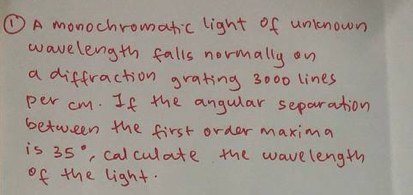 ① A monochromatic light of unknown
wavelength falls normally on
a diffraction grating 3000 lines
per cm. If the angular separation
between the first order maxima
is 35°, calculate the wavelength
of the light.